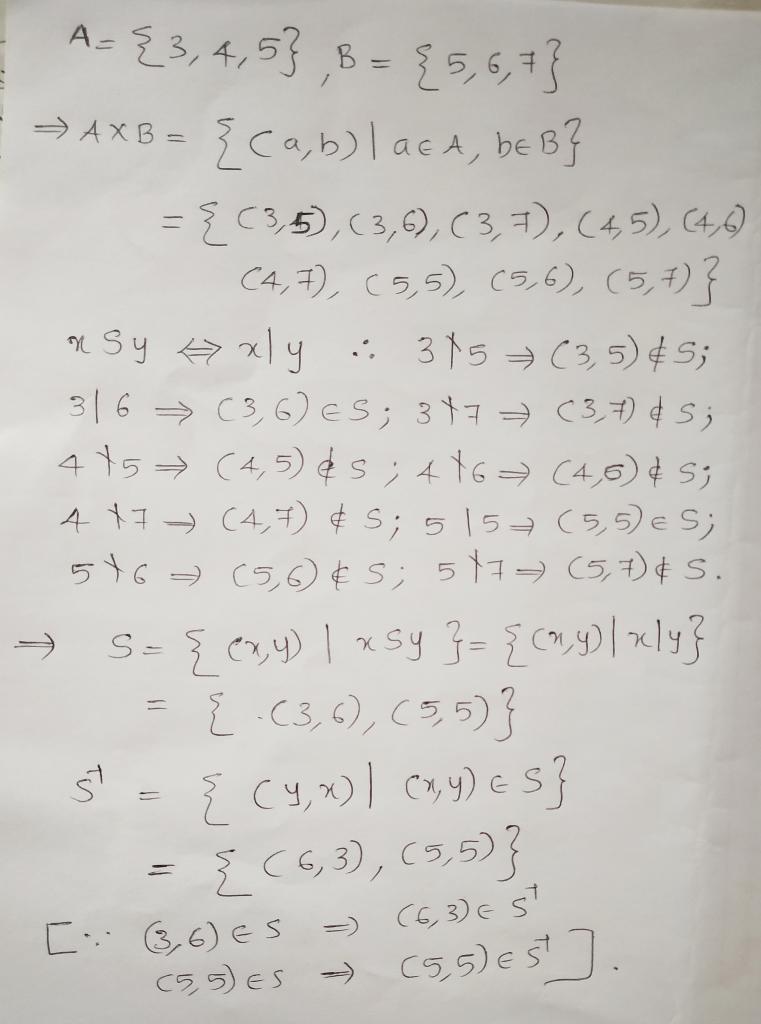 A = {3, 4, 5}, B = {5, 6, 7}
⇒ A X B = {(a, b) | a ∈ A, b ∈ B}
= {(3, 5), (3, 6), (3, 7), (4, 5), (4, 6)
(4, 7), (5, 5), (5, 6), (5, 7)}
x S y ⇔ x | y ∴ 3 ∤ 5 ⇒ (3, 5) ∉ S;
3 | 6 ⇒ (3, 6) ∈ S; 3 ∤ 7 ⇒ (3, 7) ∉ S;
4 ∤ 5 ⇒ (4, 5) ∉ S; 4 ∤ 6 ⇒ (4, 6) ∉ S;
4 ∤ 7 ⇒ (4, 7) ∉ S; 5 | 5 ⇒ (5, 5) ∈ S;
5 ∤ 6 ⇒ (5, 6) ∉ S; 5 ∤ 7 ⇒ (5, 7) ∉ S.
⇒ S = {(x, y) | x S y} = {(x, y) | x | y}
= {(3, 6), (5, 5)}
S⁻¹ = {(y, x) | (x, y) ∈ S}
= {(6, 3), (5, 5)}
[∵ (3, 6) ∈ S ⇒ (6, 3) ∈ S⁻¹
(5, 5) ∈ S ⇒ (5, 5) ∈ S⁻¹].